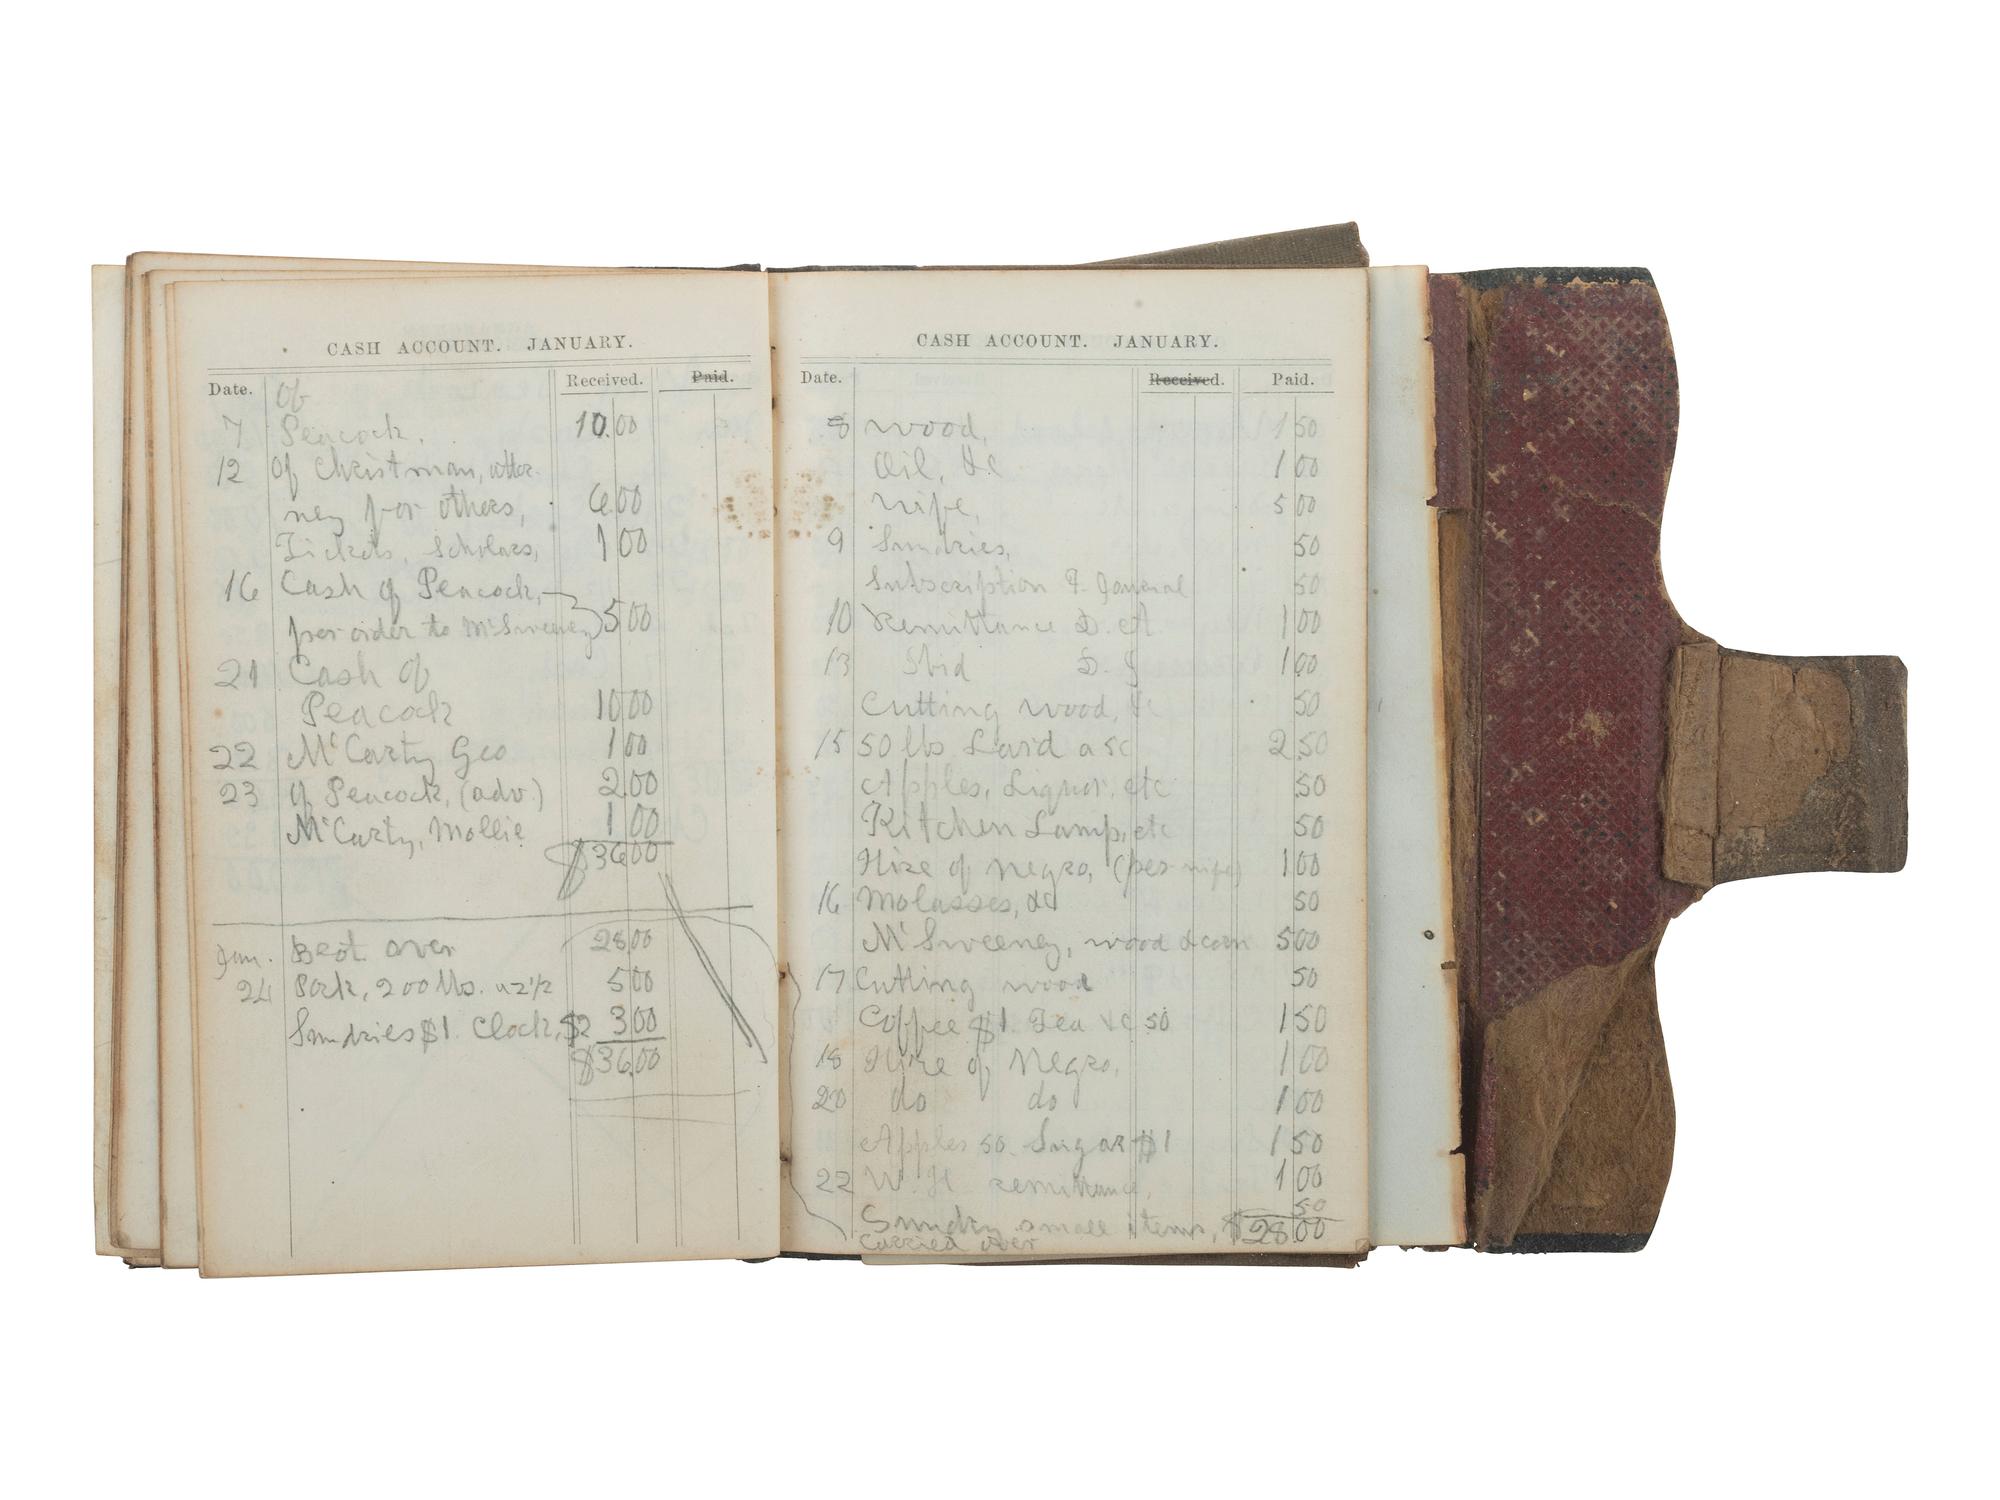 CASH ACCOUNT. JANUARY.
Date. Of Received. Paid.
7 Peacock, 10.00
12 Of Christman, attor-
ney for others, 6.00
Tickets, Scholars, 1 00
16 Cash of Peacock,
per order to McSweeney 5 00
21 Cash of
Peacock 10 00
22 McCarty Geo 1 00
23 Of Peacock, (adv.) 2 00
McCarty, Mollie 1 00
$36 00
Jan. Brot. over 28 00
24 Pork, 200 lbs. a 2 1/2 5 00
Sundries $1. Clock, $2 3 00
$36.00
CASH ACCOUNT. JANUARY.
Date. Received. Paid.
8 wood, 1 50
Oil, &c 1 00
Wife, 5 00
9 Sundries, 50
Subscription F. Journal 50
10 Remittance D. A. 1 00
13 Ibid D. 1 00
Cutting wood, &c 50
15 50 lbs. Lard a 5c 2 50
Apples, Liquor, etc 50
Kitchen Lamp, etc 50
Hire of Negro, (per wife) 1 00
16 Molasses, &c 50
McSweeney, wood & corn 5 00
17 Cutting wood 50
Coffee $1. Tea &c 50 1 50
18 Hire of Negro, 1 00
20 do do 1 00
Apples 50. Sugar $1 1 50
22 W. H. remittance, 1 00
50
Sundry small items, $28.00
Carried over